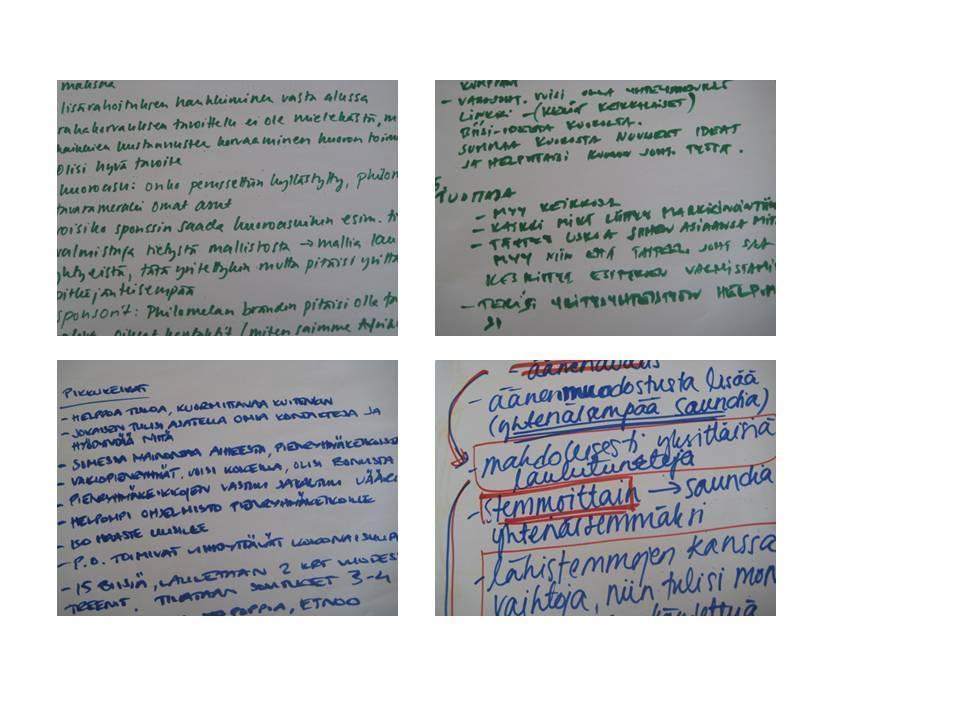 maksaa
lisärahoituksen hankkiminen vasta alussa
rahakorvauksen tavoittelu ei ole mielekästä, m
kaikkien kustannusten korvaaminen kuoron toim
olisi hyvä tavoite
kuoroasu: onko perussettiin kyllästytty, philom
tavaramerkki omat asut
voisiko sponssin saada kuoroasuihin esim. ti
valmistaja tietystä mallistosta → mallia lau
yhtyeistä, tätä yritettykin mutta pitäisi yrittä
pitkäjänteisempää
sponsorit: Philomelan brändin pitäisi olla
oikeat kontaktit / miten saimme
- VARAJOHT. VOISI OLLA YHTEYSHENKILÖ
LINKKI - (KERÄÄ KEIKKALAISET)
BIISI-IDEOITA KUOROLTA.
SUMMAA KUOROSTA NOUSSEET IDEAT
JA HELPOTTAISI KUORON JOHT. TYÖTÄ.
TUOTTAJA
- MYY KEIKKOJA
- KAIKKI MIKÄ LIITTYY MARKKINOINTIIN
- TÄYTYY USKOA SIIHEN ASIAANSA MITÄ
MYY NIIN ETTÄ TAITEEL. JOHT. SAA
KESKITTYÄ ESITYKSEN VALMISTAMI
- TEKISI YRITYSYHTEISTYÖN HELPOM
SI
PIKKUKEIKAT
- HELPPOA TULOA, KUORMITTAVAA KUITENKIN
- JOKAISEN TULISI AJATELLA OMIA KONTAKTEJA JA
HYÖDYNTÄÄ NIITÄ
- SOMESSA MAINONTAA AIHEESTA, PIENRYHMÄKEIKOISTA
- VAKIOPIENRYHMÄT. VOISI KOKEILLA, OLISI BONUSTA
- PIENRYHMÄKEIKKOJEN VASTUU JAKAUTUU VÄÄRI
- HELPOMPI OHJELMISTO PIENRYHMÄKEIKOILLE
- ISO HAASTE
- P.O. TOIMIVAT VIIHDYTTÄVÄT KOKONAISUUDE
- 15 BIISIÄ, LAULETAAN 2 KRT VUODES
TREENIT. TILATAAN SOVITUKSET 3-4
POPPIA, ETNOO
- äänenavaus
- äänenmuodostusta lisää
(yhtenäisempää saundia)
- mahdollisesti yksittäisiä
laulutunteja
- stemmoittain → saundia
yhtenäistemmäksi
- lähistemmojen kanssa
vaihtoja, niin tulisi mon